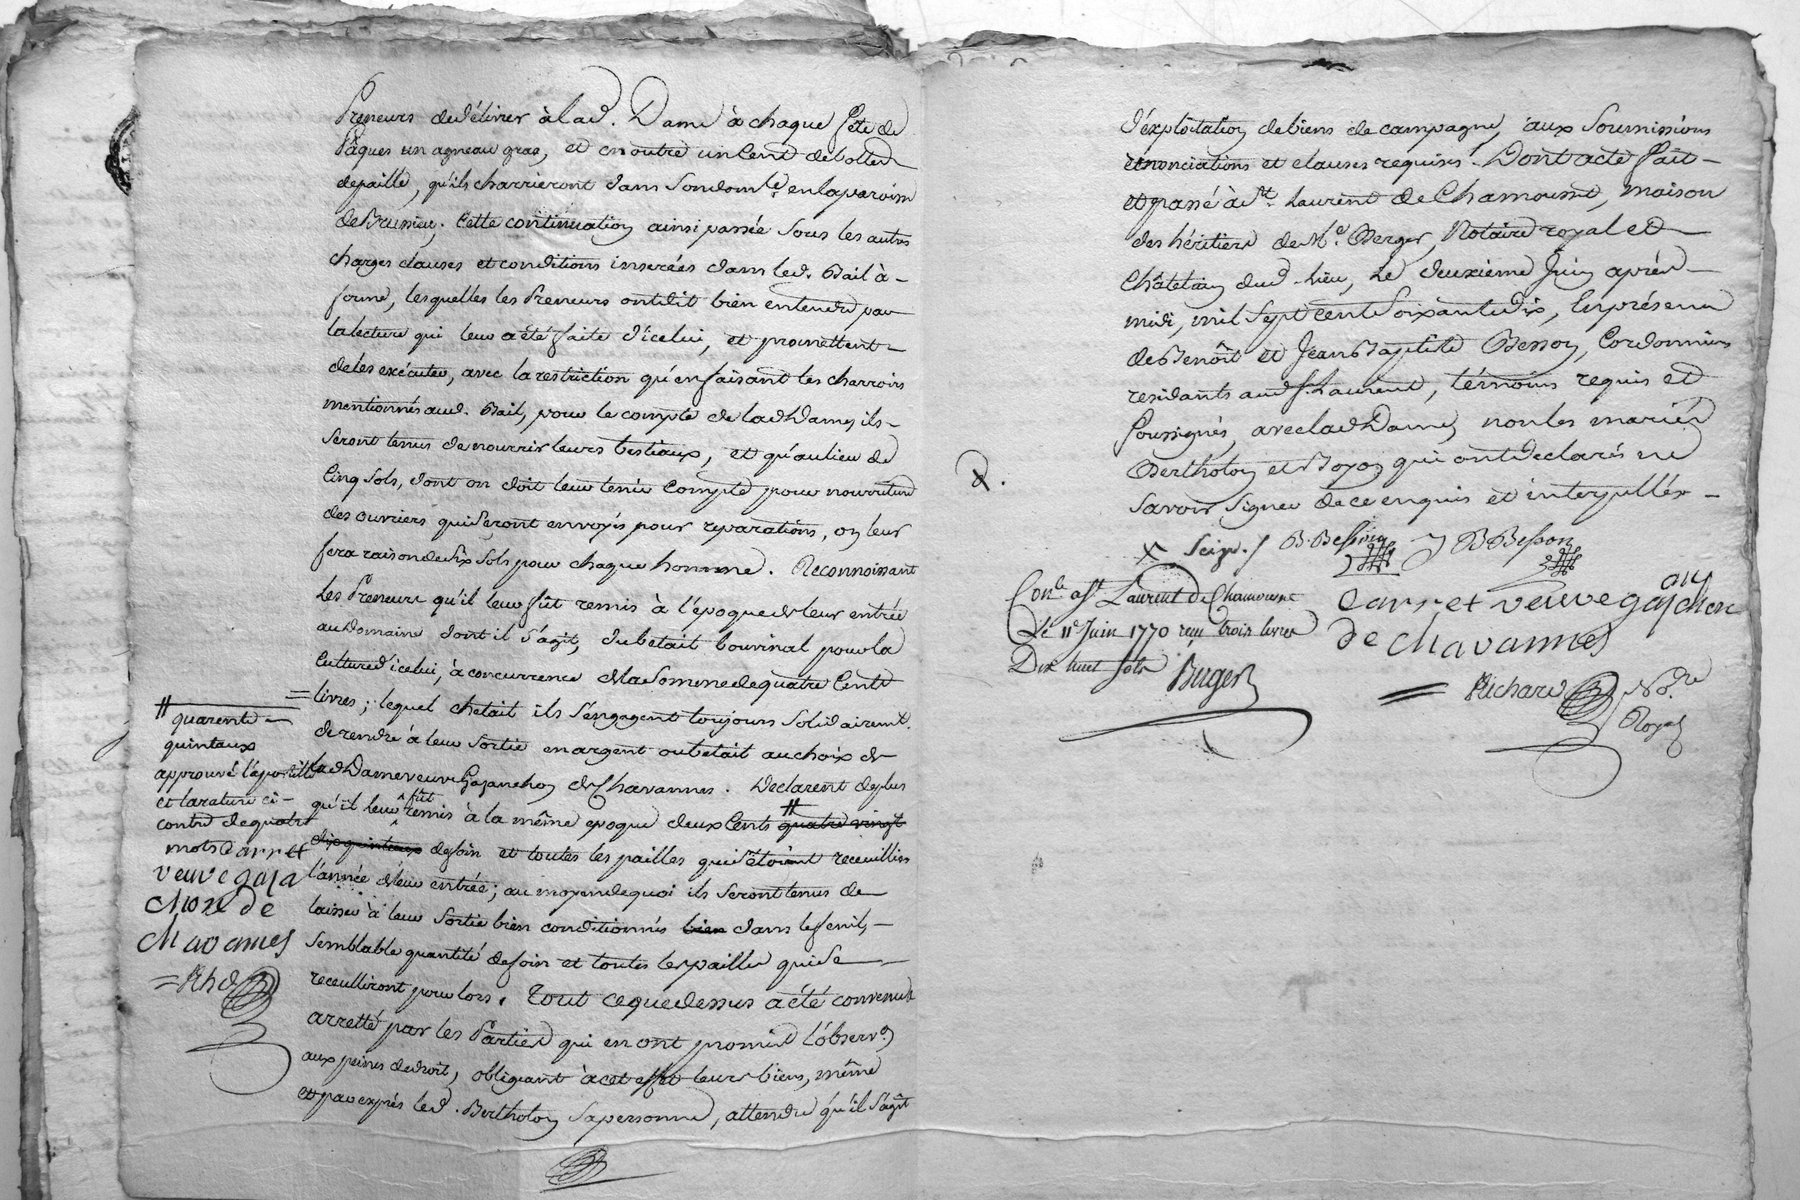 Preneurs de délivrer à lad. Dame à chaque fête de
Pâques un agneau gras, et en outre un Cent de bottes
de paille, qu'ils charrieront dans son domle. en la paroisse
de Brussieu. Cette continuation ainsi passée sous les autres
charges clauses et conditions inserées dans led. Bail à-
ferme, lesquelles les Preneurs ont dit bien entendre par
la lecture qui leur a été faite d'icelui, et promettent-
de les exécuter, avec la restriction qu'en faisant les charrois
mentionnés aud. Bail, pour le compte de lad Dame, ils-
seront tenus de nourrir leurs bestiaux, et qu'au lieu de
Cinq sols, dont on doit leur tenir compte pour nourriture
des ouvriers qui seront envoyés pour reparations, on leur
fera raison de six sols pour chaque homme. Reconnoissant
Les Preneurs qu'il leur fût remis à l'époque de leur entrée
au Domaine dont il s'agit, du betail bouvinal pour la
Culture d'icelui, à concurrence de la somme de quatre Cents
livres; lequel betail ils s'engagent toujours solidairemt.
de rendre à leur sortie en argent ou betail au choix de
lad Dame veuve Gajanchon de Chavannes. Declarent de plus
qu'il leur fût remis à la même epoque deux Cents # quatre vingt
dix quintaux de foin et toutes les pailles qui s'étoient receuillies
l'année de leur entrée; au moyen de quoi ils seront tenus de
laisser à leur sortie bien conditionnés bien dans le fenil,-
semblable quantité de foin et toutes les pailles qui se-
receuilliront pour lors. Tout ce que dessus a été convenu et
arretté par les Parties qui en ont promis l'observon
aux peines de droit, obligeant à cet effet leurs biens, même
et par exprés led. Bertholon sa personne, attendu qu'il s'agit
# quarente-
quintaux
approuvé l'apostille
et la rature ci-
contre de quatre
mots Carret
veuve gaja
chon de
chavannes
=Rhd
d'exploitation de biens de campagne, aux soumissions
renonciations et clauses requises. Dont acte fait-
et passé à St. Laurent de Chamousset, maison
des héritiers de Me. Berger, Notaire royal et-
Châtelain dud. lieu, Le deuxième Juin après-
midi, mil sept cent soixante dix, En présence
de Benoît et Jean Baptiste Besson, Cordonniers
residants aud St. Laurent, témoins requis et
soussignés, avec lad Dame, non les mariés
Bertholon et Boyon qui ont declarés ne
savoir signer de ce enquis et interpellés-
B. Besson J B Besson
Carret veuve gajanchon
de chavannes
Conlé. à St Laurent de Chamousset
Le 11e Juin 1770 reçu trois livres
Dix huit sols
Berger
= Richard No.re
Royal